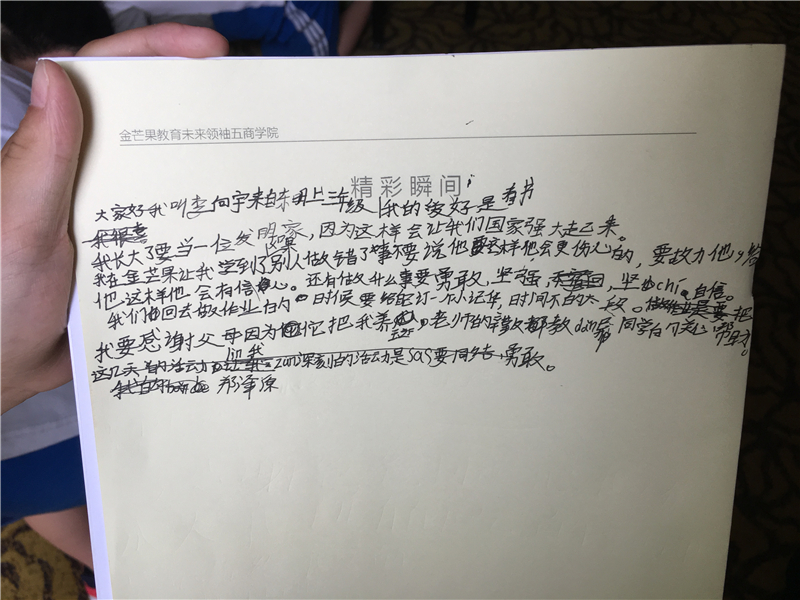 金芒果教育未来领袖五商学院
精彩瞬间
大家好我叫李向宇来自东明上三年级我的爱好是看书
我长大了要当一位发明家,因为这样会让我们国家强大走起来。
我在金芒果让我学到了如果别人做错了事不要说他这样他会更伤心的,要鼓力他,给
他,这样他会有信心。还有做什么事要勇敢,坚强,坚chi。自信。
我们回去做作业在内一日时候要给自己订一个小记华,时间不的大
我要感谢父母因为把我养大,老师的教dao同学的关心帮助。
这几天的活动深刻的活动是SOS要同ケ勇敢。
郑泽原